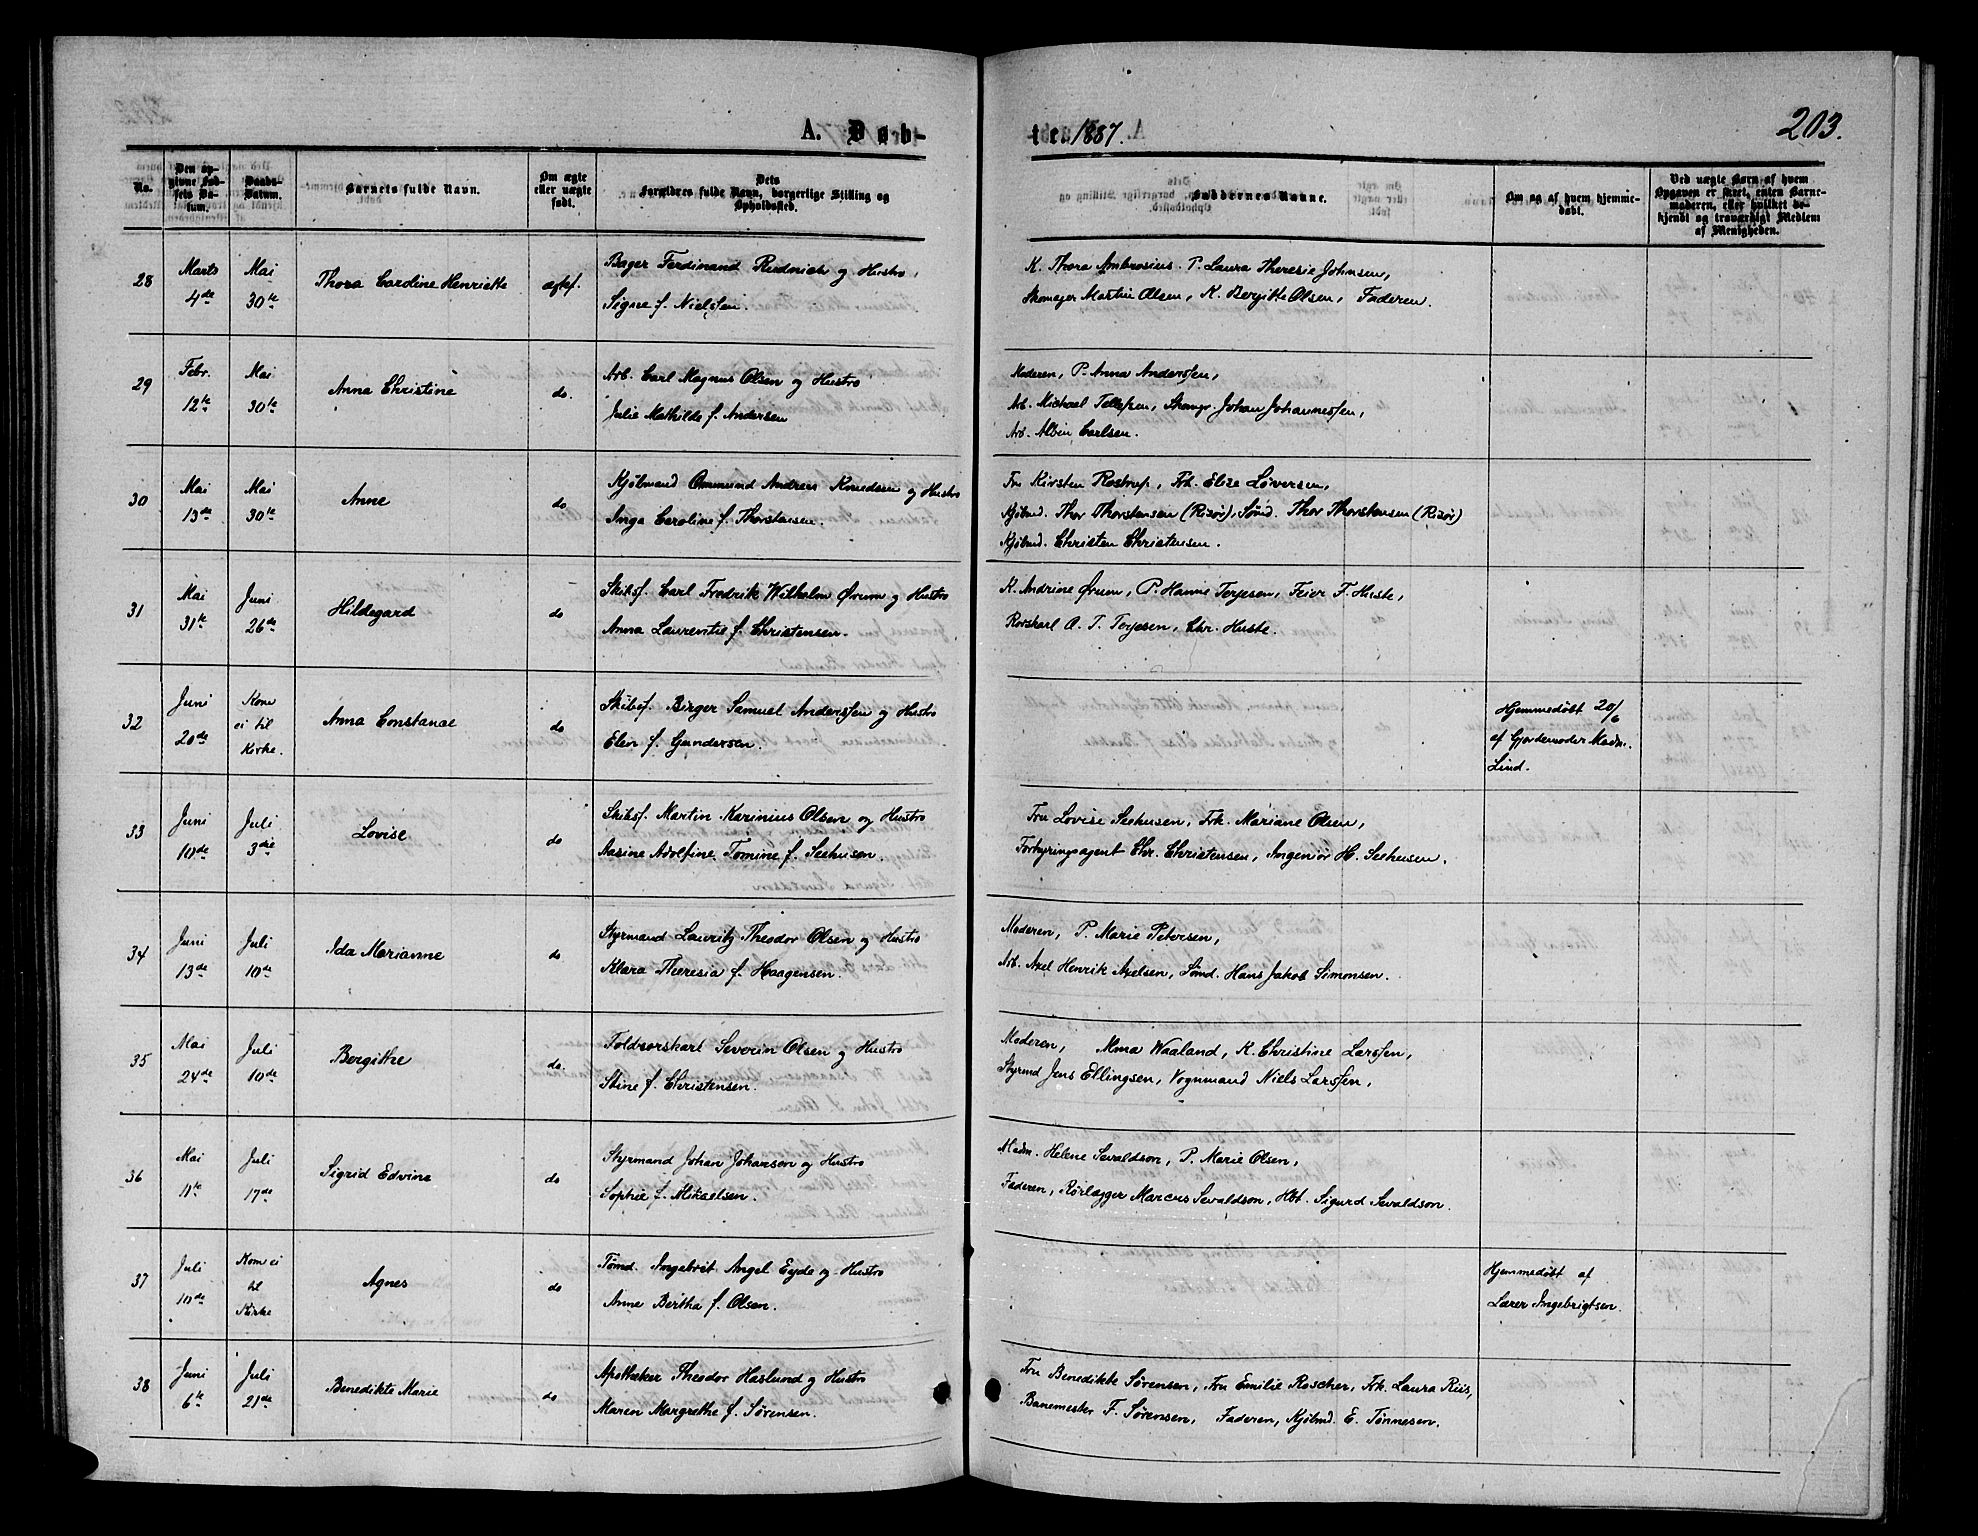 A. Døb-
te. 1887.
203.
No.
Den op-
givne Fød-
sels Da-
tum.
Daabs-
Datum.
Barnets fulde Navn.
Om ægte
eller uægte
født.
Dets
Forældres fulde Navn, borgerlige Stilling og
Opholdssted.
Faddernes Navne.
Om og af hvem hjemme-
døbt.
Ved uægte Børn af hvem
Opgaven er skeet, enten Barne-
moderen, eller hvilket be-
kjendt og troværdigt Medlem
af Menigheden.
28
Marts
4de
Mai
30te
Thora Caroline Henriette
ægtef.
Bager Ferdinand Rudnick og Hustro
Signe f. Nielssen.
K. Thora Ambrosius P. Laura Theresie Johnsen,
Skomager Martin Olsen, K. Bergitte Olsen, Faderen.
29
Febr.
12te
Mai
30te
Anna Christine
do.
Arb. Carl Magnus Olsen og Hustro
Julie Mathilde f. Andersen
Moderen, P. Anna Anderssen,
Arb. Michael Tellefsen, Skomgr. Johan Johannessen,
Arb. Albin Carlsen.
30
Mai
13de
Mai
30te
Anne
do
Kjøbmand Ommund Andreas Knudsen og Hustro
Inga Caroline f. Thorstensen.
Fru Kirsten Rostrup, Frk. Elise Løversen,
Kjøbmd. Thor Thorstensen (Risør), Sømd. Thor Thorstensen (Risør)
Kjøbmd. Christen Christensen.
31
Mai
31te
Juni
26de
Hildegard
do
Skibsf. Carl Fredrik Wilhelm Ørum og Hustro
Anna Laurentie f. Christensen.
K. Andrine Ørum, P. Hanne Terjesen, Feier F. Huste,
Rorskarl A. T. Terjesen, Chr. Huste.
32
Juni
20de
Kom
ei til
Kirke.
Anna Constance
do
Skibsf. Birger Samuel Anderssen og Hustro
Elen f. Gundersen.
Hjemmedøbt 20/6
af Gjordemoder Madm.
Lind.
33
Juni
10de
Juli
3die
Lovise
do
Skibsf. Martin Karinius Olsen og Hustro
Aasine Adolfine Tomine f. Seehusen.
Fru Lovise Seehusen, Frk. Mariane Olsen,
Forhyringsagent Chr. Christensen, Ingeniør H. Seehusen.
34
Juni
13de
Juli
10de
Ida Marianne
do
Styrmand Lauritz Theodor Olsen og Hustro
Klara Theresia f. Haagensen.
Moderen, P. Marie Petersen,
Arb. Axel Henrik Axelsen, Sømd. Hans Jakob Simonsen.
35
Mai
24de
Juli
10de
Bergithe
do.
Toldrorskarl Severin Olsen og Hustro
Stine f. Christensen.
Moderen, Mma Waaland, K. Christine Larssen,
Styrmd Jens Ellingsen, Vognmand Niels Larssen,
36
Mai
11te
Juli
17de
Sigrid Edvine
do
Styrmand Johan Johansen og Hustro
Sophie f. Mikaelsen.
Madm. Helene Sevaldson, P. Marie Olsen,
Faderen, Rørlægger Marcus Sevaldson, Hbt. Sigurd Sevaldson.
37
Juli
10de
Kom ei
til
Kirke
Agnes
do
Tømd. Ingebret Angel Eyde og Hustro
Anne Bertha f. Olsen.
Hjemmedøbt af
Lærer Ingebrigtsen.
38
Juni
6te
Juli
21de
Benedikte Marie
do
Apotheker Theodor Haslund og Hustro
Maren Margrethe f. Sørensen.
Fru Benedikte Sørensen, Fru Emilie Roscher, Frk. Laura Riis,
Banemester F. Sørensen, Faderen, Kjøbmd. E. Tønnesen.